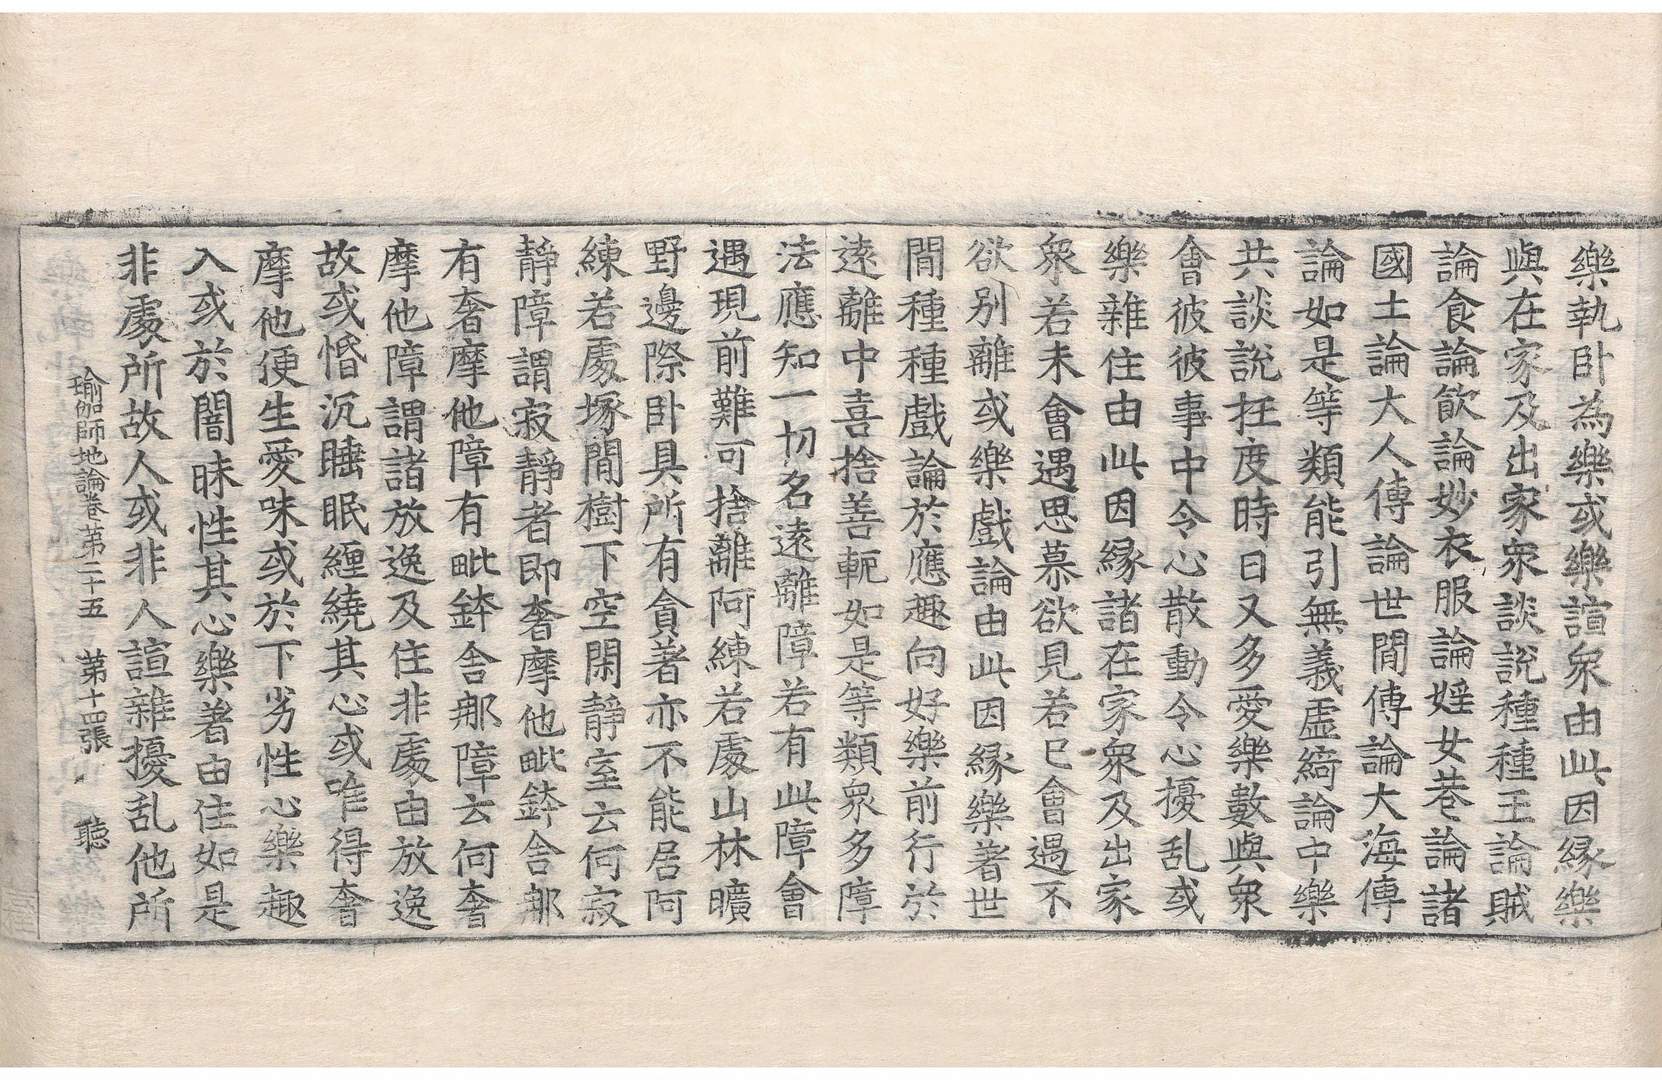 樂執卧為樂或樂諠衆由此因緣樂
與在家及出家衆談說種種王論賊
論食論飮論妙衣服論婬女巷論諸
國土論大人傳論世閒傳論大海傳
論如是等類能引無義虛綺論中樂
共談說抂度時日又多愛樂數與衆
會彼彼事中令心散動令心擾乱或
樂雜住由此因緣諸在家衆及出家
衆若未會遇思慕欲見若已會遇不
欲别離或樂戲論由此因緣樂著世
閒種種戲論於應趣向好樂前行於
遠離中喜捨善軛如是等類衆多障
法應知一切名遠離障若有此障會
遇現前難可捨離阿練若處山林曠
野邊際卧具所有貪著亦不能居阿
練若處塚閒樹下空閑靜室云何寂
靜障謂寂靜者即奢摩他毗鉢舍那
有奢摩他障有毗鉢舍那障云何奢
摩他障謂諸放逸及住非處由放逸
故或惛沉睡眠纏繞其心或唯得奢
摩他便生愛味或於下劣性心樂趣
入或於闇昧性其心樂著由住如是
非處所故人或非人諠雜擾乱他所
瑜伽師地論卷第二十五　第十四張　聽